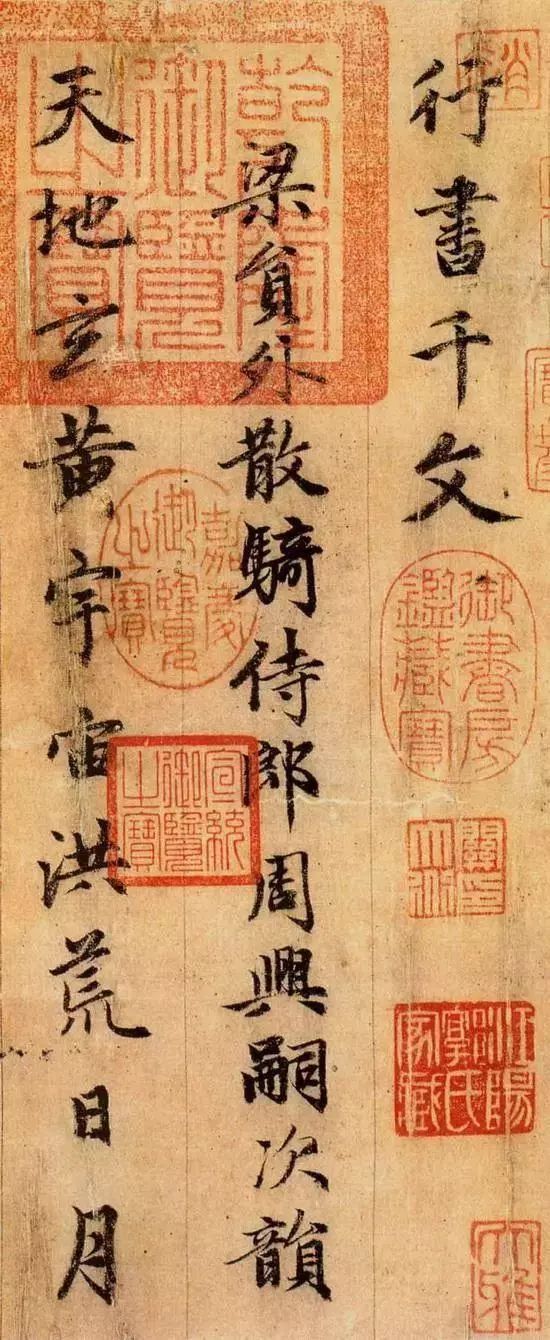 行書千文
御書房鑑藏寶
梁員外散騎侍郎周興嗣次韻
乾隆御覽之寶
嘉慶御覽之寶
宣統御覽之寶
天地玄黃宇宙洪荒日月